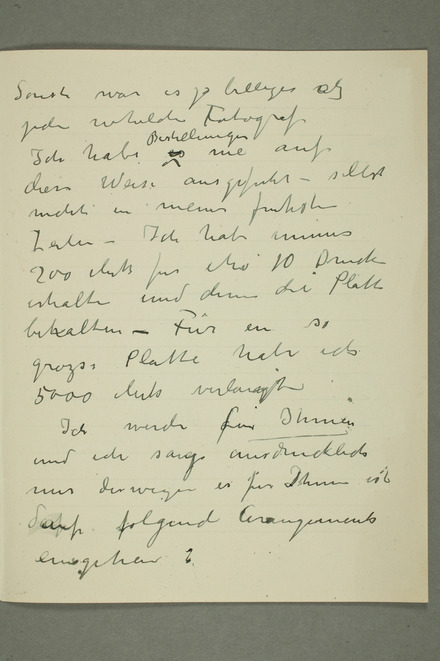 Sonst war es ja billiges als
jede Fotograf
Ich habe Bestellungen nie auf
diese Weise ausgeführt – selbst
nicht in meine fruhste
Zeiten – Ich habe immer
200 Mk fur 10 Drucke
erhalte und dann die Platte
behalten – Für en so
grozse Platte habe ich
5000 Mk verlangt
Ich werde für Ihnen
und ich sage ausdrucklich
nur deswegen es fur Ihnen ist
auf folgend Arangements
eingehen :